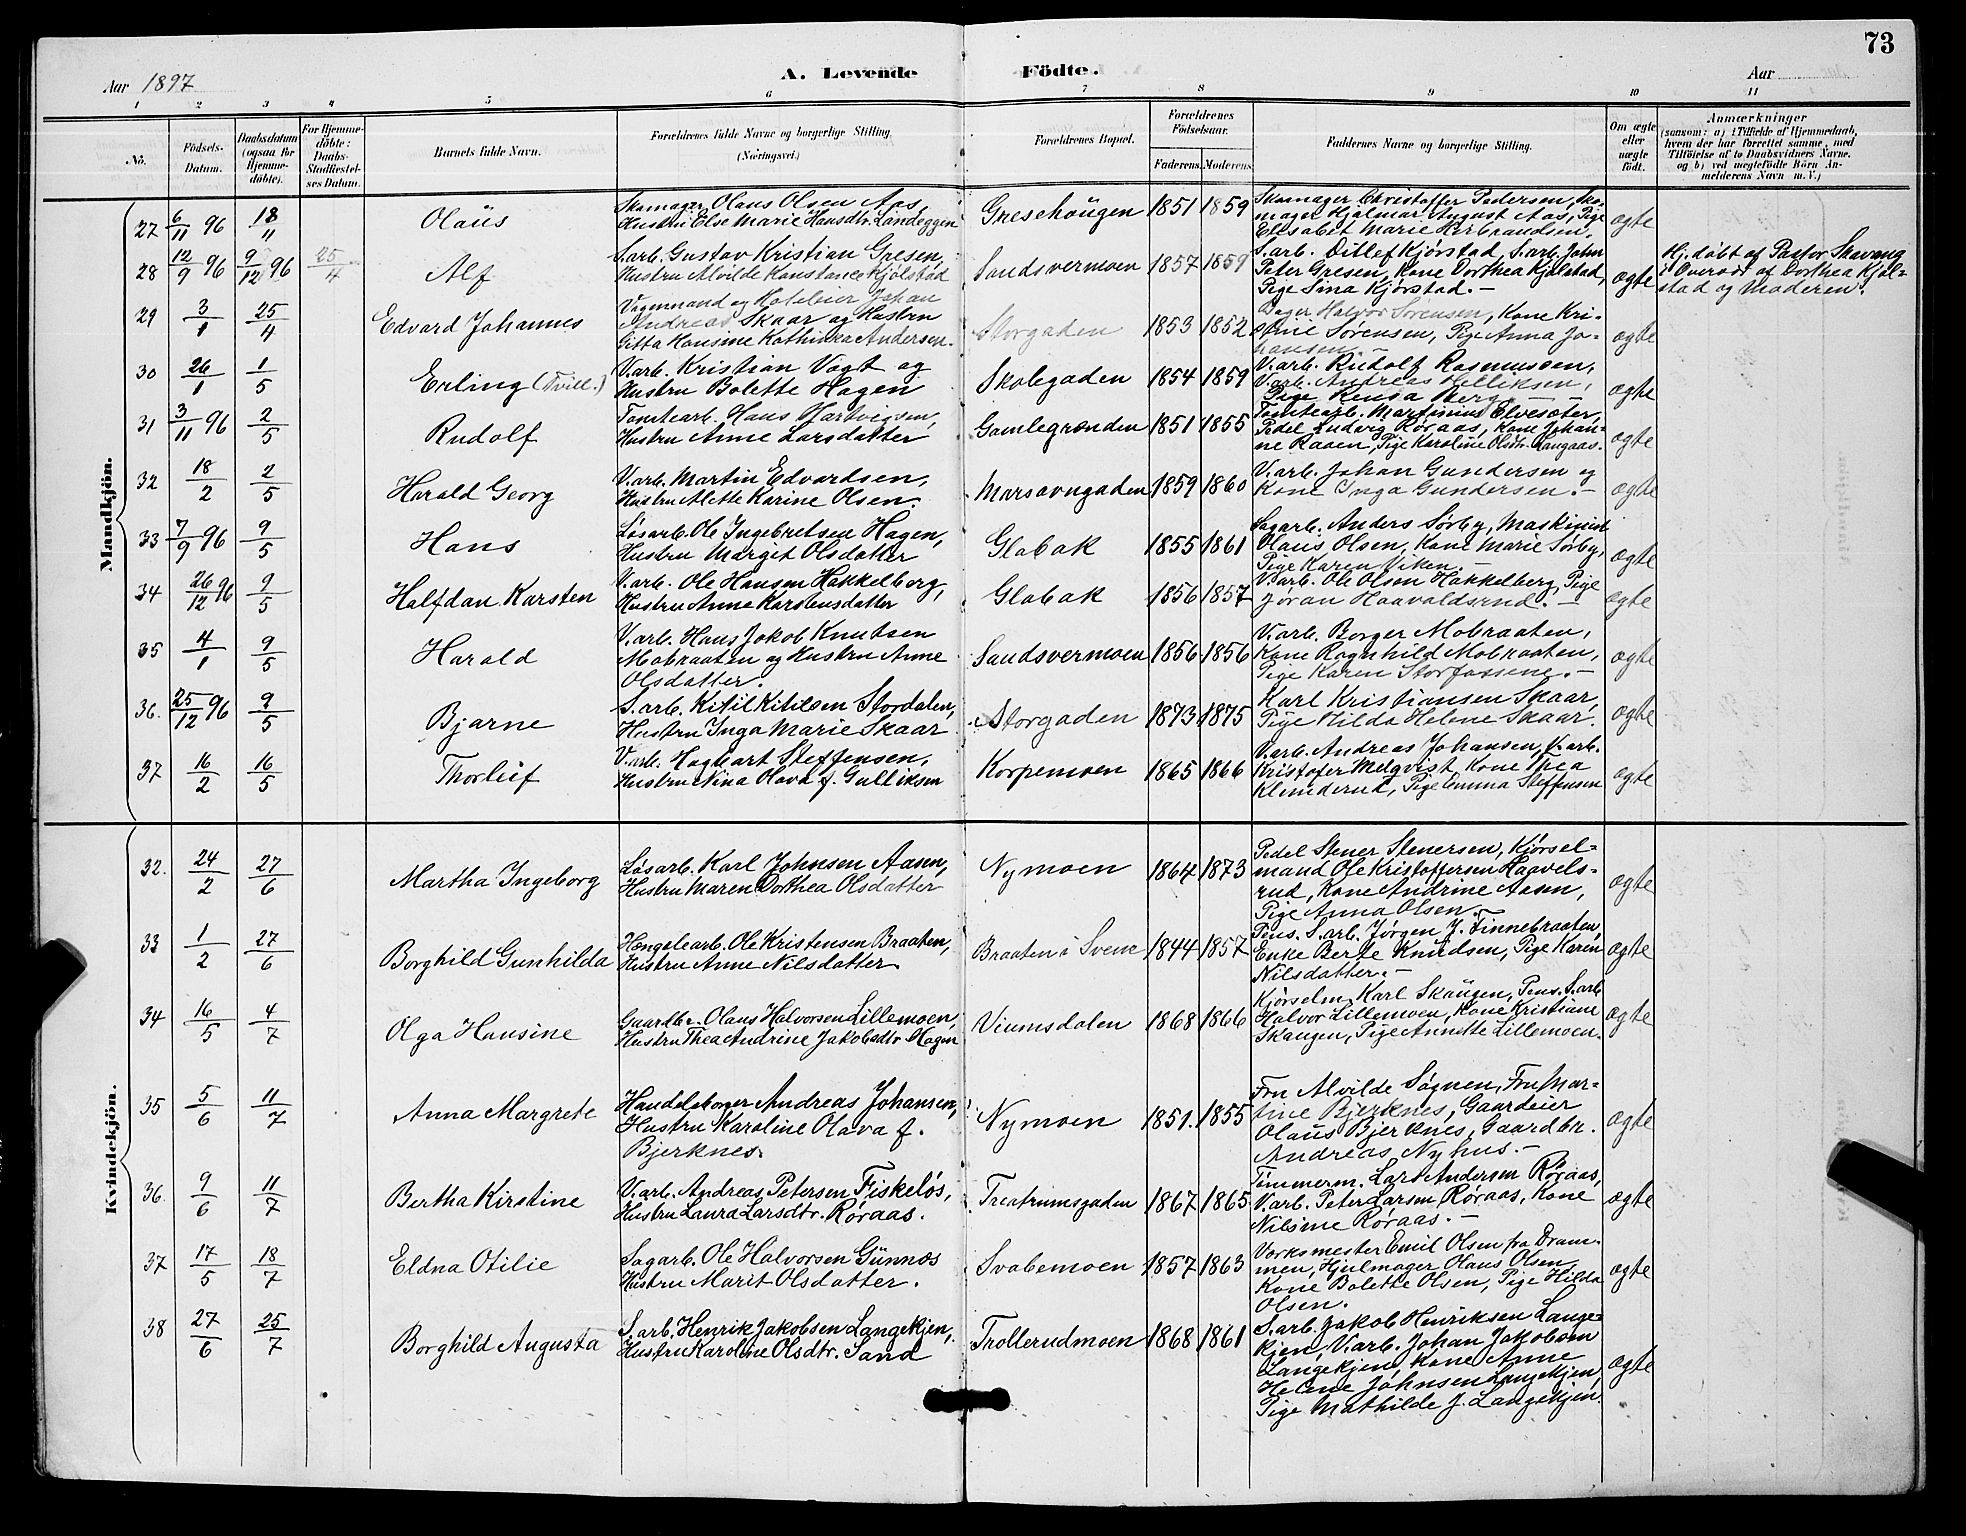 73
Aar 1897
A. Levende Födte.
Aar
1 2 3 4 5 6 7 8 9 10 11
No.
Födsels-
Datum.
Daabsdatum
(ogsaa for
Hjemme-
döbte).
For Hjemme-
döbte:
Daabs-
Stadfæstel-
ses Datum.
Barnets fulde Navn.
Forældrenes fulde Navne og borgerlige Stilling.
(Næringsvei.)
Forældrenes Bopæl.
Forældrenes
Födselsaar.
Faderens. Moderens.
Faddernes Navne og borgerlige Stilling.
Om ægte
eller
uægte
födt.
Anmærkninger
(saasom: a) i Tilfælde af Hjemmedaab,
hvem der har forrettet samme, med
Tilföielse af to Daabsvidners Navne,
og b) ved uægtefödte Börn An-
melderens Navn m. V.)
Mandkjön.
27 6/11 96 18/11 Olaüs
Skomager Olaus Olsen Aas,
Hustru Else Marie Hansdtr. Landeggen
Gresehöugen 1851 1859
Skomager Christoffer Pedersen, Sko-
mager Hjalmar August Aas, Pige
Elisabet Marie Herbrandsen.
ægte
28 12/9 96 9/12 96 25/4 Alf
S.arb. Gustav Kristian Gresen,
Hustru Alvilde Konstance Kjølstad
Sandsvermoen 1857 1859
S.arb. Ditlef Kjörstad, S.arb. John
Peter Gresen, Kone Dorthea Kjølstad,
Pige Sina Kjörstad. —
ægte
Hj. døbt af Pastor Skavang
i Overvær af Dorthea Kjøl-
stad og Moderen.
29 3/1 25/4 Edvard Johannes
Vognmand og Hoteleier Johan
Andreas Skaar og Hustru
Gitta Hansine Kathinka Andersen.
Storgaden 1853 1852
Bager Halvor Sorensen, Kone Kri-
stine Sorensen, Pige Anna Jo-
hansen. —
ægte
30 26/1 1/5 Erling (Tvill.)
V.arb. Kristian Vogt og
Hustru Bolette Hagen
Skolegaden 1854 1859
V.arb. Rudolf Rasmussen,
V.arb. Andreas Helliksen,
Pige Berg. —
ægte
31 3/11 96 2/5 Rudolf
Tomtearb. Hans Hartvigsen,
Hustru Anne Larsdatter
Gamlegrænden 1851 1855
Tomtearb. Martinius Elvesæter,
Pedel Ludvig Røraas, Kone Johan-
ne Raaen, Pige Karoline Olsdtr. Langaas.
ægte
32 18/2 2/5 Harald Georg
V.arb. Martin Edvardsen,
Hustru Alette Karine Olsen.
Marsovngaden 1859 1860
V.arb. Johan Gundersen og
Kone Inga Gundersen. —
ægte
33 7/9 96 9/5 Hans
Løsarb. Ole Ingebretsen Hagen,
Hustru Margit Olsdatter
Glabak 1855 1861
Sagarb. Anders Sørby, Maskinist
Olaus Olsen, Kone Marie Sørby,
Pige Karen Viken. —
ægte
34 26/12 96 9/5 Halfdan Karsten
V.arb. Ole Hansen Hakkelberg,
Hustru Anne Karstensdatter
Glabak 1856 1857
V.arb. Ole Olsen Hakkelberg, Pige
Jøran Haavaldsrud. —
ægte
35 4/1 9/5 Harald
V.arb. Hans Jakob Knutsen
Mobraaten og Hustru Anne
Olsdatter.
Sandsvermoen 1856 1856
V.arb. Borger Mobraaten,
Kone Ragnhild Mobraaten,
Pige Karen Storfossene. —
ægte
36. 25/12 96 9/5 Bjarne
S.arb. Kitil Kitilsen Stordalen,
Hustru Inga Marie Skaar
Storgaden 1873 1875
Karl Kristiansen Skaar,
Pige Hilda Helene Skaar.
ægte
37 16/2 16/5 Thorleif
V.arb. Hagbart Steffensen,
Hustru Nina Olava f. Gulliksen
Korpemoen 1865 1866
V.arb. Andreas Johansen, V.arb.
Kristofer Melqvist, Kone Thea
Klunderud, Pige Emma Steffensen
ægte
Kvindekjön.
32. 24/2 27/6 Martha Ingeborg
Løsarb. Karl Johnsen Aasen,
Hustru Maren Dorthea Olsdatter
Nymoen 1864 1873
Pedel Stener Stenersen, Kjørsel-
mand Ole Kristoffersen Haavels-
rud, Kone Andrine Aasen,
Pige Anna Olsen.
ægte
33 1/2 27/6 Borghild Gunhilda
Hængslearb. Ole Kristensen Braaten,
Hustru Anne Nilsdatter
Braaten i Svene 1844 1857
Pens. S.arb. Jørgen J. Finnebraaten,
Enke Berte Knudsen, Pige Karen
Nilsdatter. —
ægte
34 16/5 4/7 Olga Hansine
Gaardbr. Olaus Halvorsen Lillemoen,
Hustru Thea Andrine Jakobsdtr. Hagen
Viumsdalen 1868 1866
Kjørselm. Karl Skaugen, Pens. S.arb.
Halvor Lillemoen, Kone Kristiane
Skaugen, Pige Annette Lillemoen.
ægte
35 5/6 11/7 Anna Margrete
Handelsborger Andreas Johansen,
Hustru Karoline Olava f.
Bjerknes.
Nymoen 1851. 1855
Fru Alvilde Søgnen, Fru Mar-
tine Bjerknes, Gaardeier
Olaüs Bjerknes, Gaardbr.
Andreas Nyhus. —
ægte
36. 9/6 11/7 Bertha Kirstine
V.arb. Andreas Petersen Fiskeløs,
Hustru Laura Larsdtr. Røraas.
Treatrumsgaden 1867 1865
Tømmerm. Lars Andersen Røraas,
V.arb. Peter Larsen Røraas, Kone
Nilsine Røraas. —
ægte
37 17/5 18/7 Eldna Otilie
Sagarb. Ole Halvorsen Günnæs
Hustru Marit Olsdatter.
Svabemoen 1857 1863
Værksmester Emil Olsen fra Dram-
men, Hjulmager Olaus Olsen,
Kone Bolette Olsen, Pige Hilda
Olsen.
ægte
38 27/6 25/7 Borghild Augusta
S.arb. Henrik Jakobsen Langekjen,
Hustru Karoline Olsdtr. Sand
Trollerudmoen 1868 1861
S.arb. Jakob Henriksen Lange-
kjen, V.arb. Johan Jakobsen
Langekjen, Kone Anne
Helene Johnsen Langekjen,
Pige Mathilde J. Langekjen.
ægte